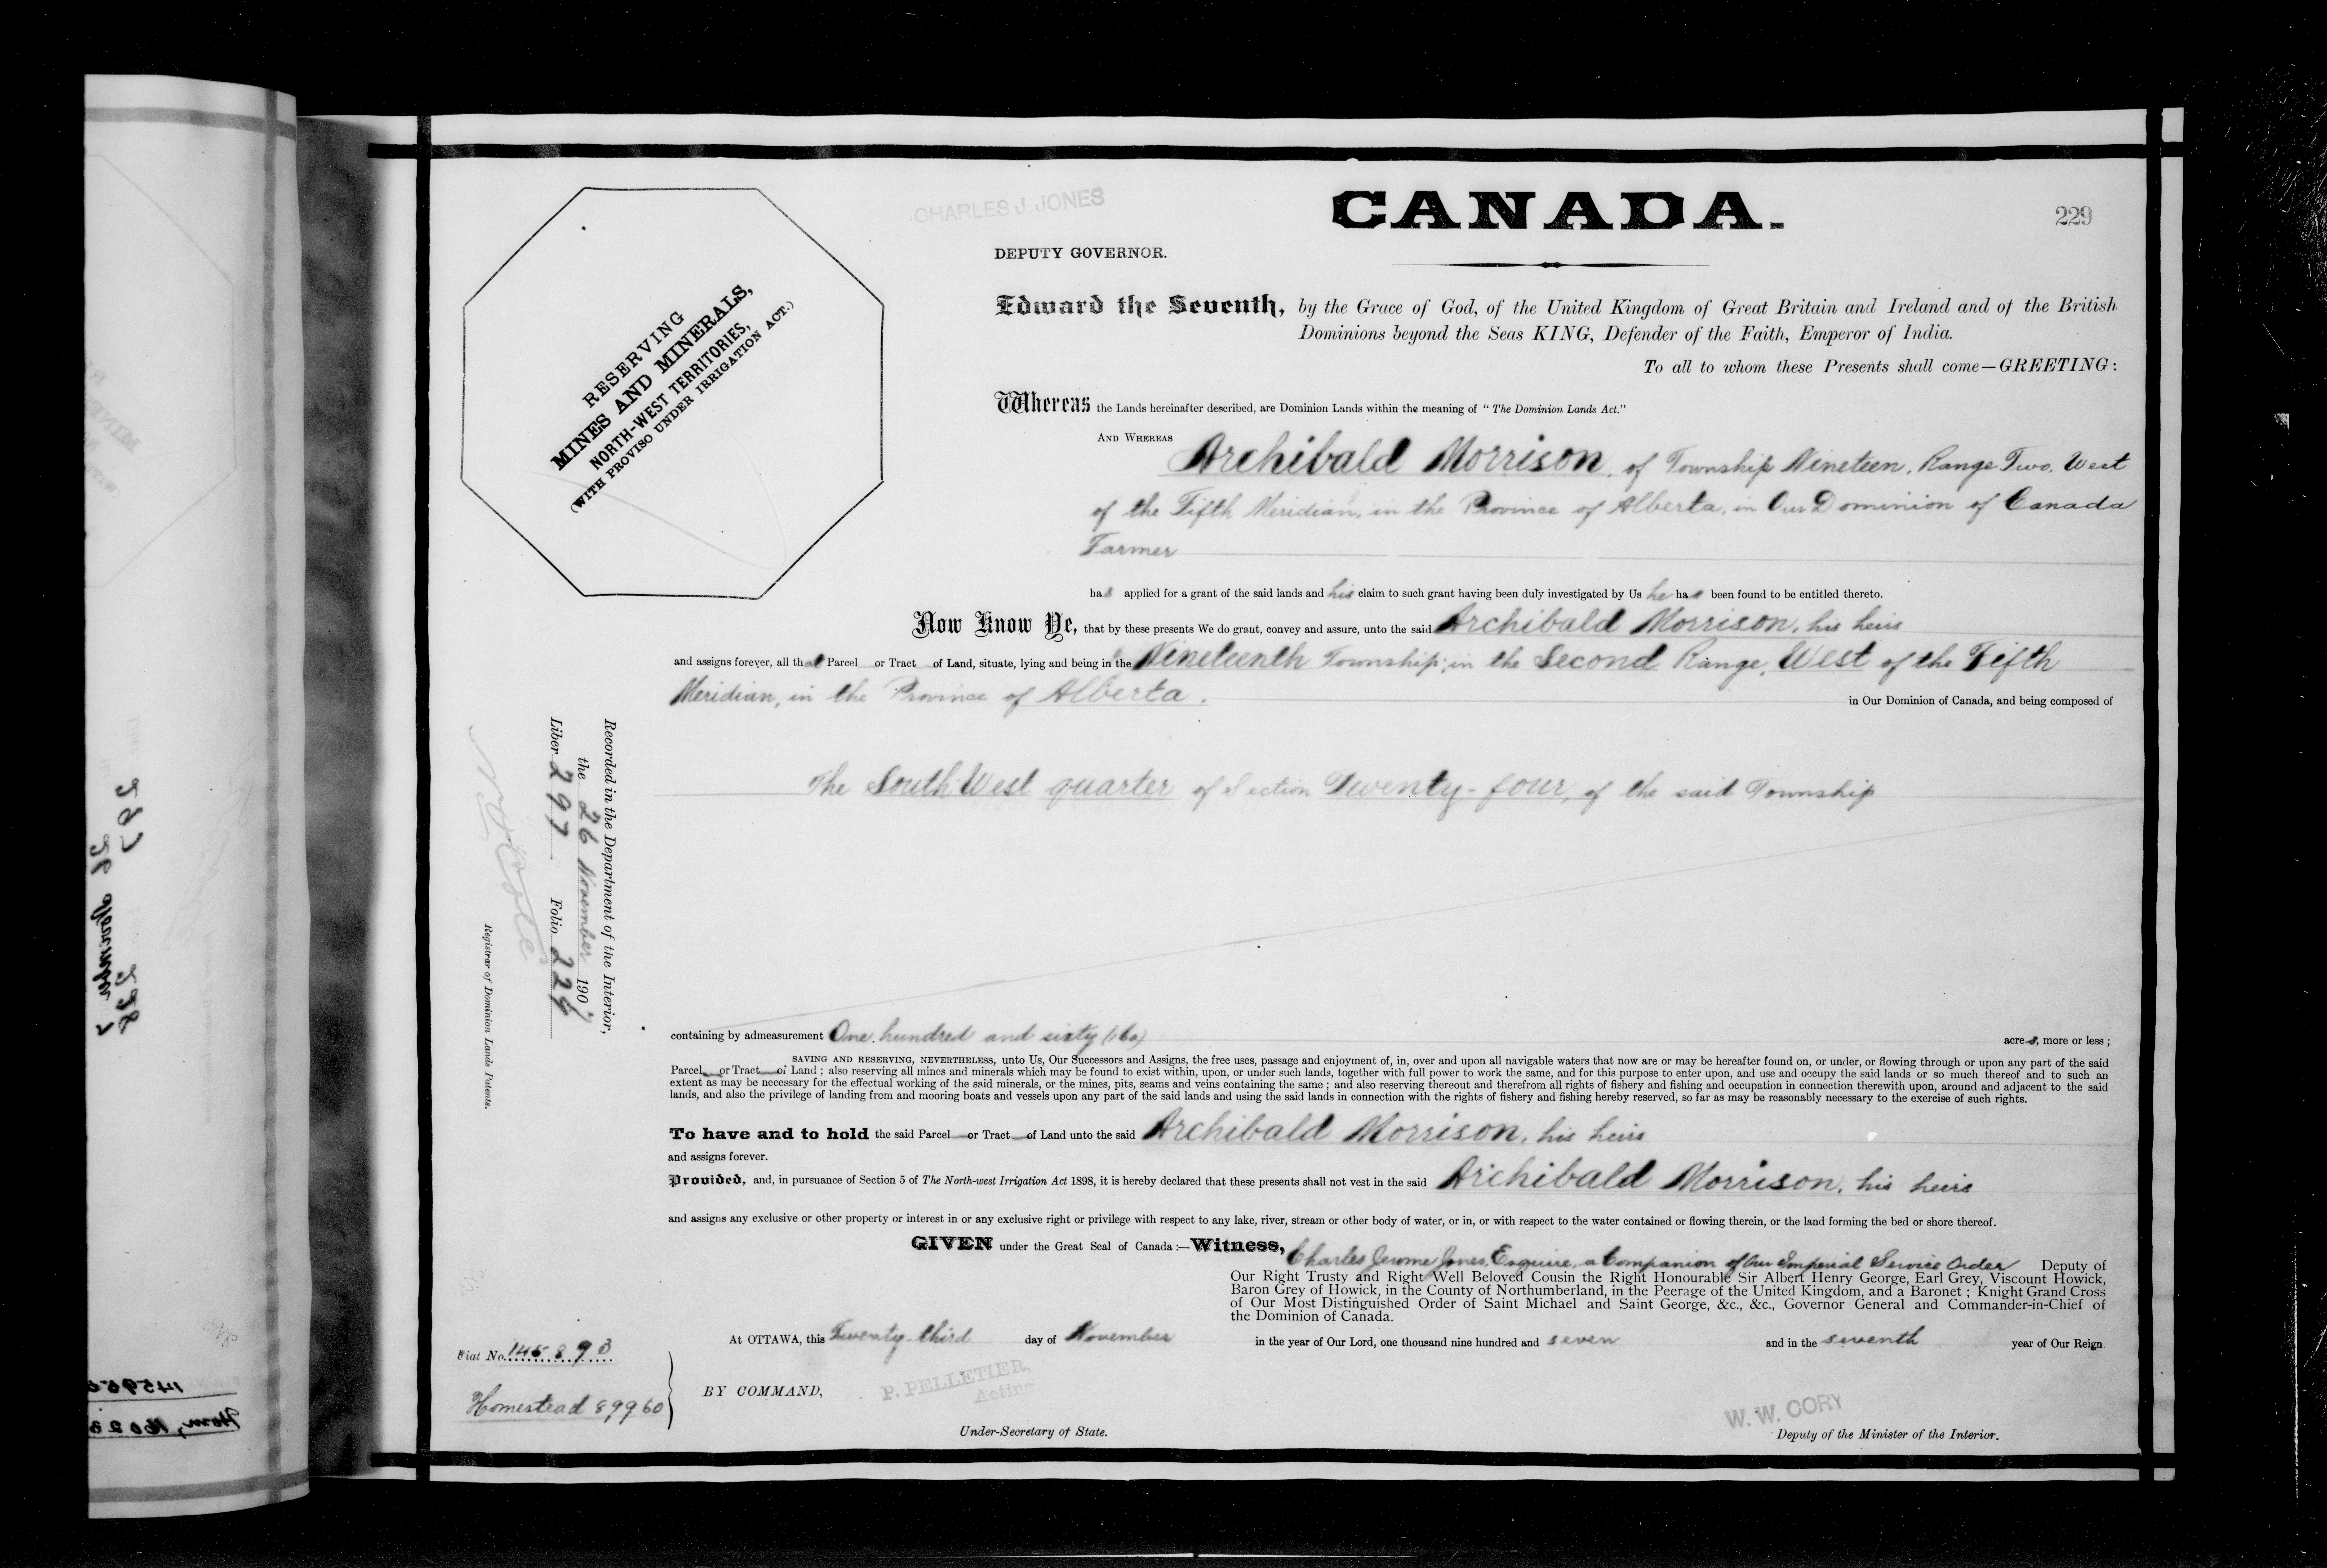 CHARLES J JONES
CANADA.
229
DEPUTY GOVERNOR.
RESERVING
MINES AND MINERALS,
NORTH-WEST TERRITORIES,
(WITH PROVISO UNDER IRRIGATION ACT.)
Edward the Seventh, by the Grace of God, of the United Kingdom of Great Britain and Ireland and of the British
Dominions beyond the Seas KING, Defender of the Faith, Emperor of India.
To all to whom these Presents shall come—GREETING:
Whereas the Lands hereinafter described, are Dominion Lands within the meaning of "The Dominion Lands Act."
AND WHEREAS
Archibald Morrison, of Township Nineteen, Range Two, West
of the Fifth Meridian, in the Province of Alberta, in Our Dominion of Canada
Farmer
has applied for a grant of the said lands and his claim to such grant having been duly investigated by Us he has been found to be entitled thereto.
Now Know Ye, that by these presents We do grant, convey and assure, unto the said Archibald Morrison, his heirs
and assigns forever, all that Parcel or Tract of Land, situate, lying and being in the Nineteenth Township, in the Second Range, West of the Fifth
Meridian, in the Province of Alberta.
in Our Dominion of Canada, and being composed of
The South West quarter of Section Twenty-four, of the said Township
Recorded in the Department of the Interior,
the 26 November 1907
Liber 297 Folio 229
Registrar of Dominion Lands Patents.
containing by admeasurement One hundred and sixty (160) acres, more or less;
SAVING AND RESERVING, NEVERTHELESS, unto Us, Our Successors and Assigns, the free uses, passage and enjoyment of, in, over and upon all navigable waters that now are or may be hereafter found on, or under, or flowing through or upon any part of the said
Parcel or Tract of Land; also reserving all mines and minerals which may be found to exist within, upon, or under such lands, together with full power to work the same, and for this purpose to enter upon, and use and occupy the said lands or so much thereof and to such an
extent as may be necessary for the effectual working of the said minerals, or the mines, pits, seams and veins containing the same; and also reserving thereout and therefrom all rights of fishery and fishing and occupation in connection therewith upon, around and adjacent to the said
lands, and also the privilege of landing from and mooring boats and vessels upon any part of the said lands and using the said lands in connection with the rights of fishery and fishing hereby reserved, so far as may be reasonably necessary to the exercise of such rights.
To have and to hold the said Parcel or Tract of Land unto the said Archibald Morrison, his heirs
and assigns forever.
Provided, and, in pursuance of Section 5 of The North-west Irrigation Act 1898, it is hereby declared that these presents shall not vest in the said Archibald Morrison, his heirs
and assigns any exclusive or other property or interest in or any exclusive right or privilege with respect to any lake, river, stream or other body of water, or in, or with respect to the water contained or flowing therein, or the land forming the bed or shore thereof.
GIVEN under the Great Seal of Canada:—Witness, Charles Jerome Jones, Esquire, a Companion of Our Imperial Service Order Deputy of
Our Right Trusty and Right Well Beloved Cousin the Right Honourable Sir Albert Henry George, Earl Grey, Viscount Howick,
Baron Grey of Howick, in the County of Northumberland, in the Peerage of the United Kingdom, and a Baronet; Knight Grand Cross
of Our Most Distinguished Order of Saint Michael and Saint George, &c., &c., Governor General and Commander-in-Chief of
the Dominion of Canada.
At OTTAWA, this Twenty-third day of November in the year of Our Lord, one thousand nine hundred and seven and in the seventh year of Our Reign
Fiat No. 145893
Homestead 89960
BY COMMAND,
P. PELLETIER,
Acting
Under-Secretary of State.
W. W. CORY
Deputy of the Minister of the Interior.